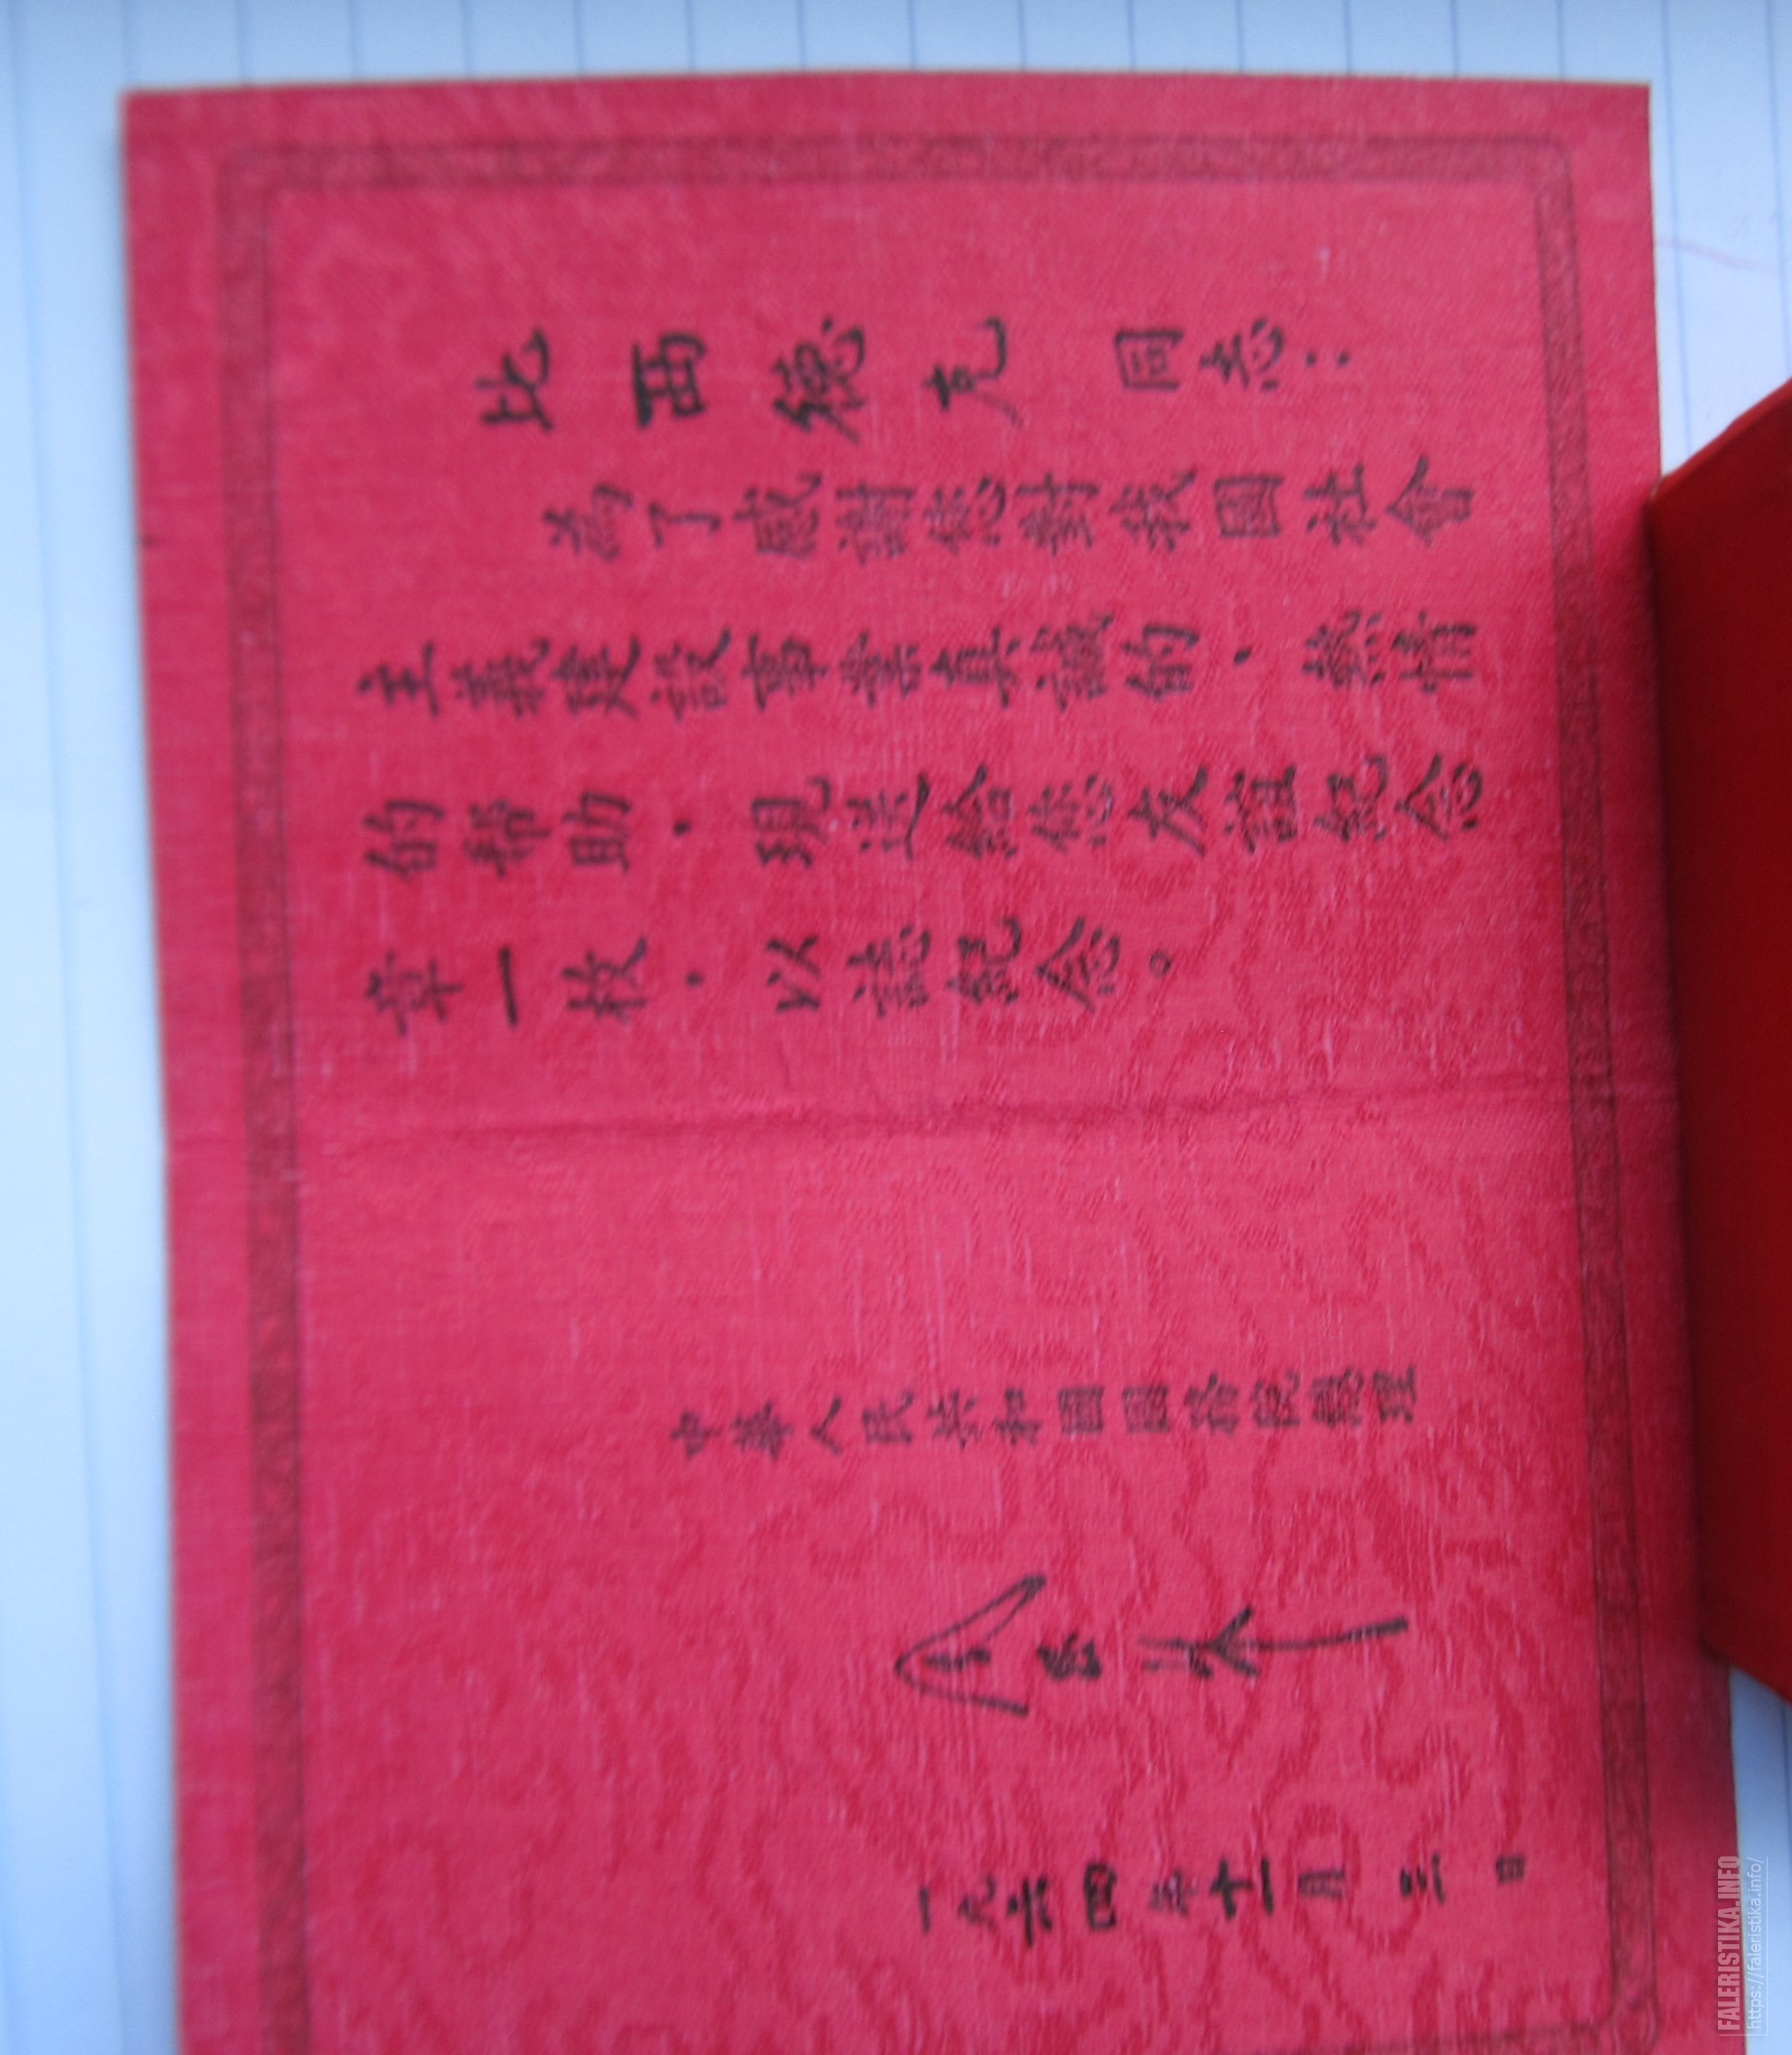 比西德克 同志：
為了感謝您對我國社會
主義建設事業真誠的、熱情
的幫助，現送給您友誼紀念
章一枚，以誌紀念。
中華人民共和國國務院總理
周恩来
一九六四年十一月三日
FALERISTIKA.INFO
https://faleristika.info/